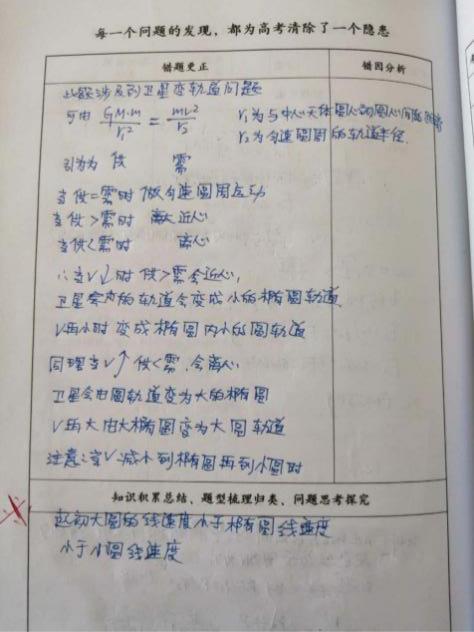 每一个问题的发现，都为高考清除了一个隐患
错题更正
错因分析
此题涉及到卫星变轨道问题
可由 GM·m/r₁² = mv²/r₂ r₁为与中心天体圆心的圆心间距
r₂为匀速圆周的轨道半径
引力为 供 需
当供=需时 做匀速圆周运动
当供>需时 近心
当供<需时 离心
∴当V↓时 供>需会近心,
卫星会由的轨道会变成小的椭圆轨道
V再小时 变成椭圆内小的圆轨道
同理当V↑ 供<需,会离心
卫星会由圆轨道变为大的椭圆
V再大由大椭圆变为大圆轨道
注意:当V减小到椭圆再到小圆时
知识积累总结、题型梳理归类、问题思考探究
起初大圆的线速度小于椭圆线速度
小于小圆线速度